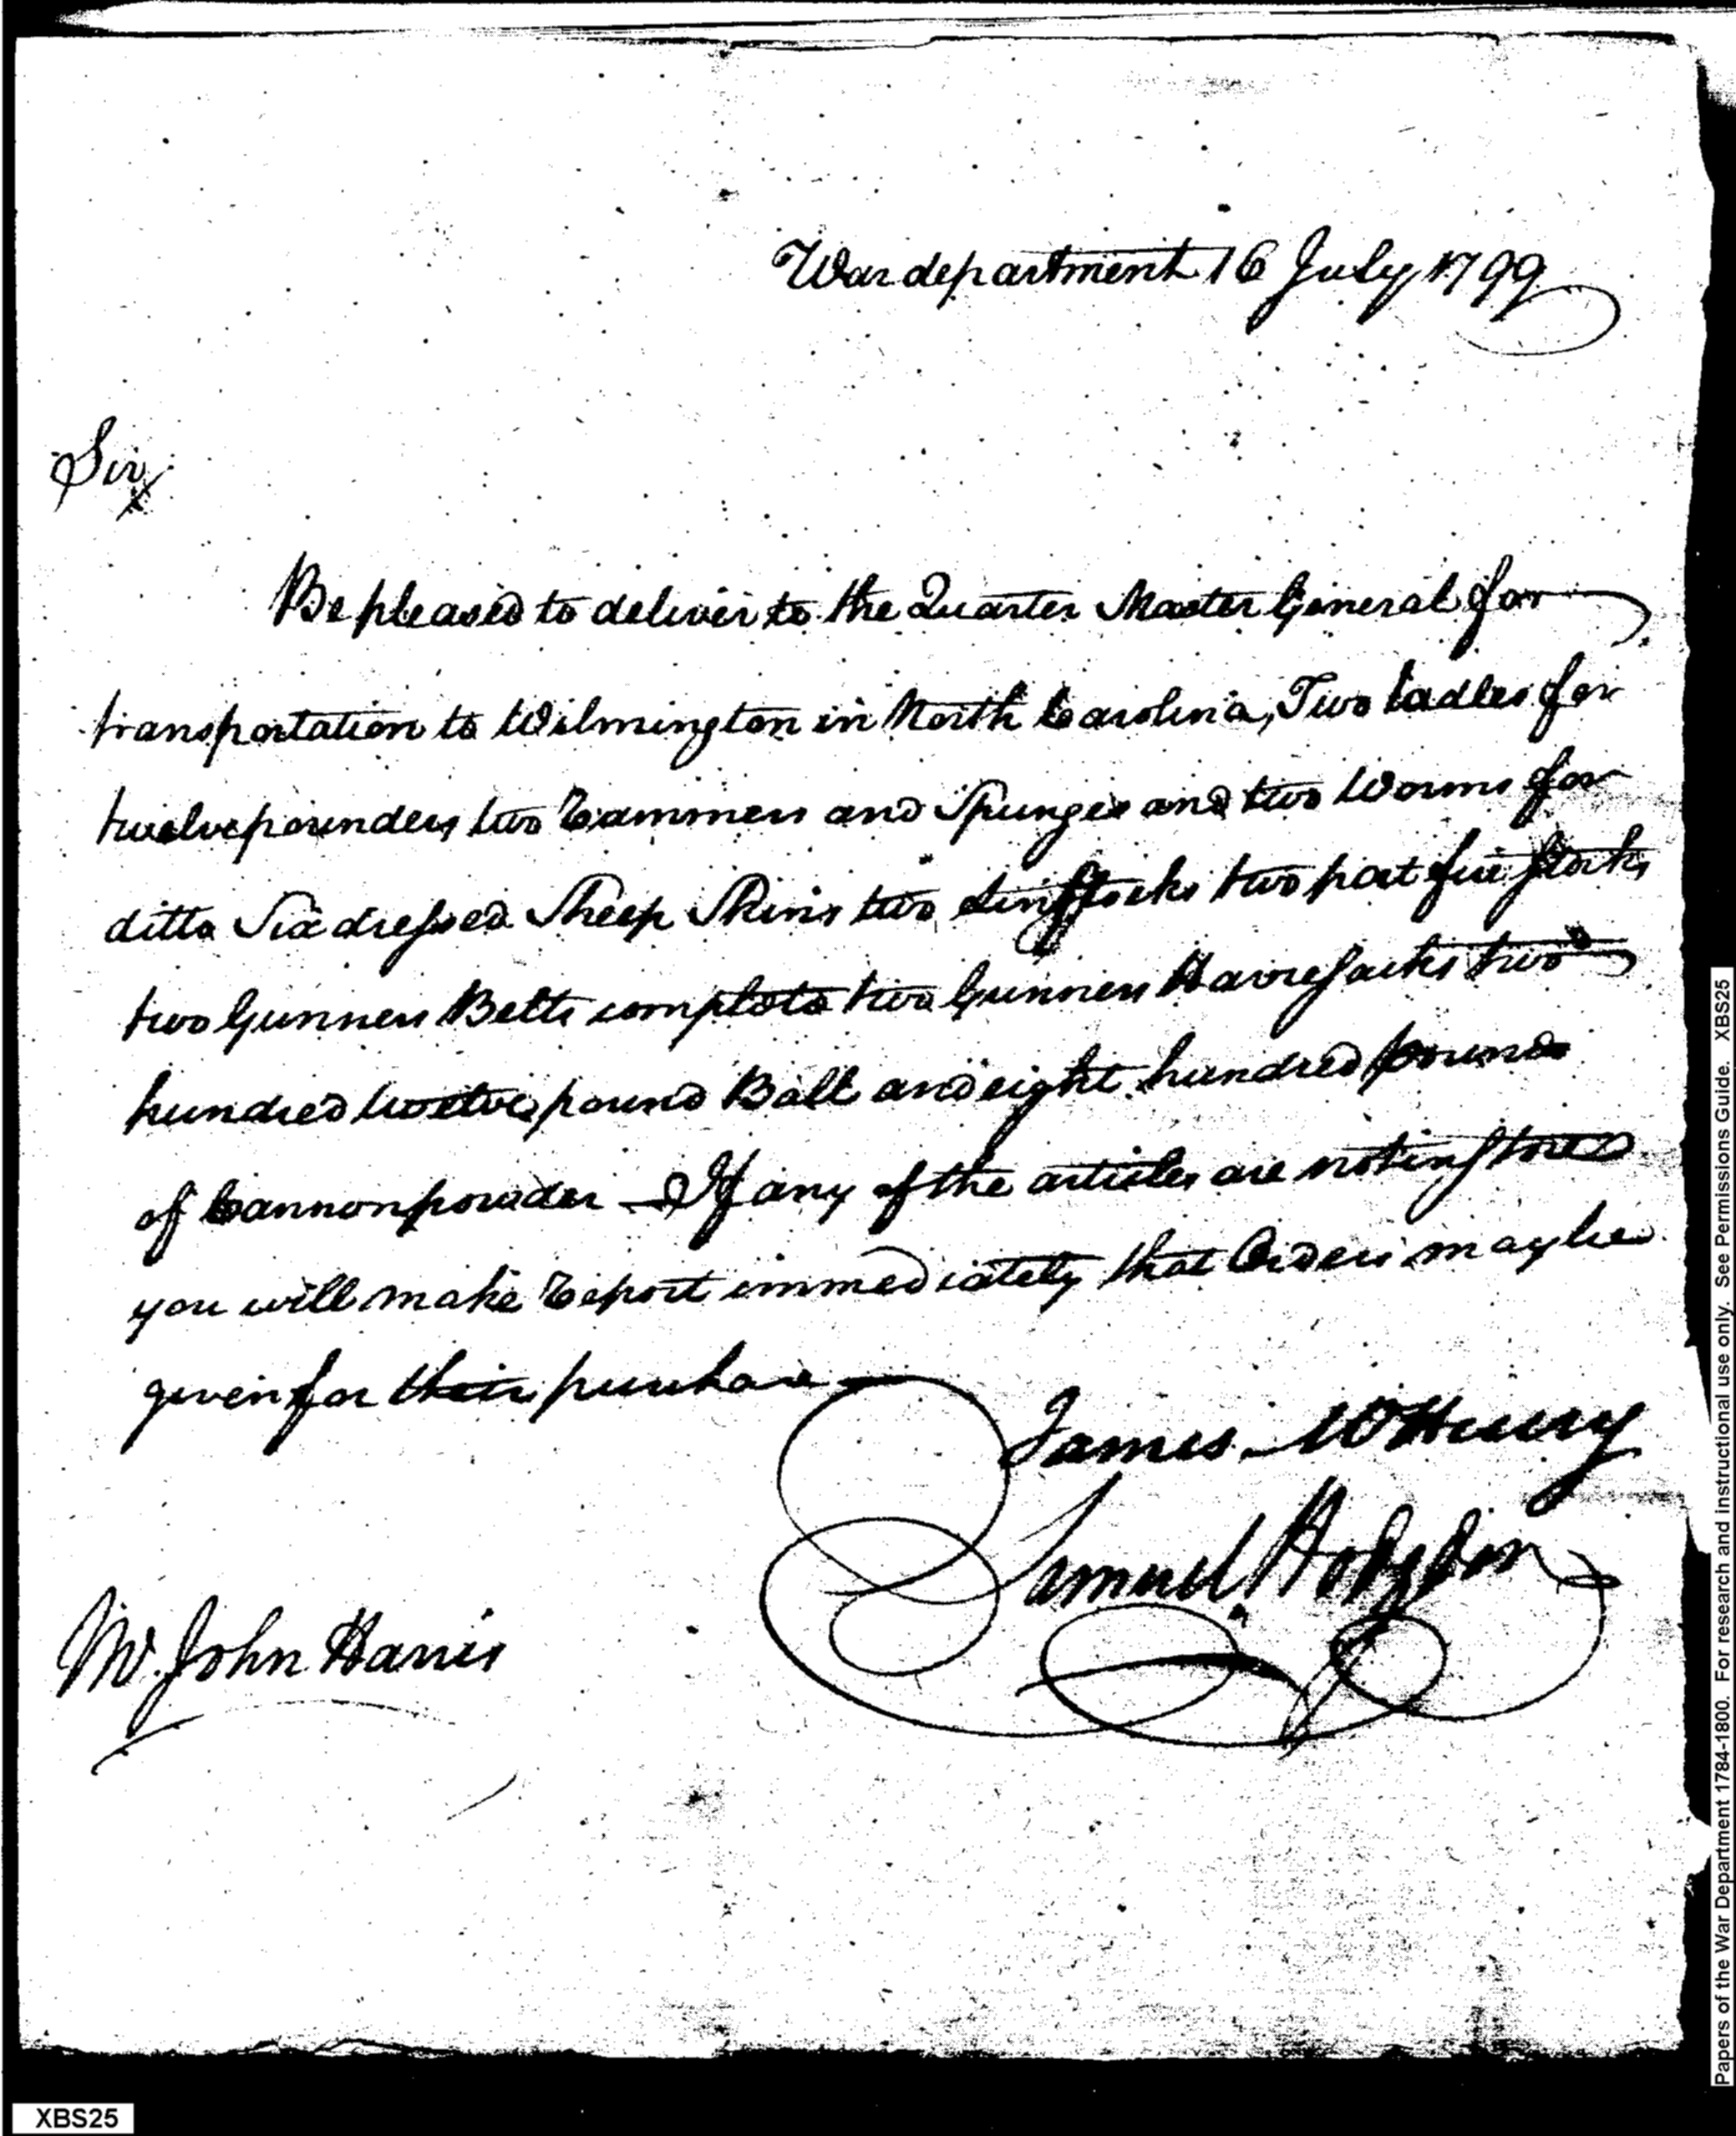 War department 16 July 1799
Sir,
Be pleased to deliver to the Quarter Master General for
transportation to Wilmington in North Carolina, Two Ladles for
twelve pounders two Rammers and Spunges and two Worms for
ditto Six dressed Sheep Skins two linstocks two port fire stocks
two Gunners Belts complete two Gunners Haversacks two
hundred twelve pound Ball and eight hundred pounds
of Cannon powder — If any of the articles are not in store
you will make Report immediately that Orders may be
given for their purchase
James McHenry
Samuel Hodgdon
Mr. John Harris
XBS25
Papers of the War Department 1784-1800. For research and instructional use only. See Permissions Guide. XBS25